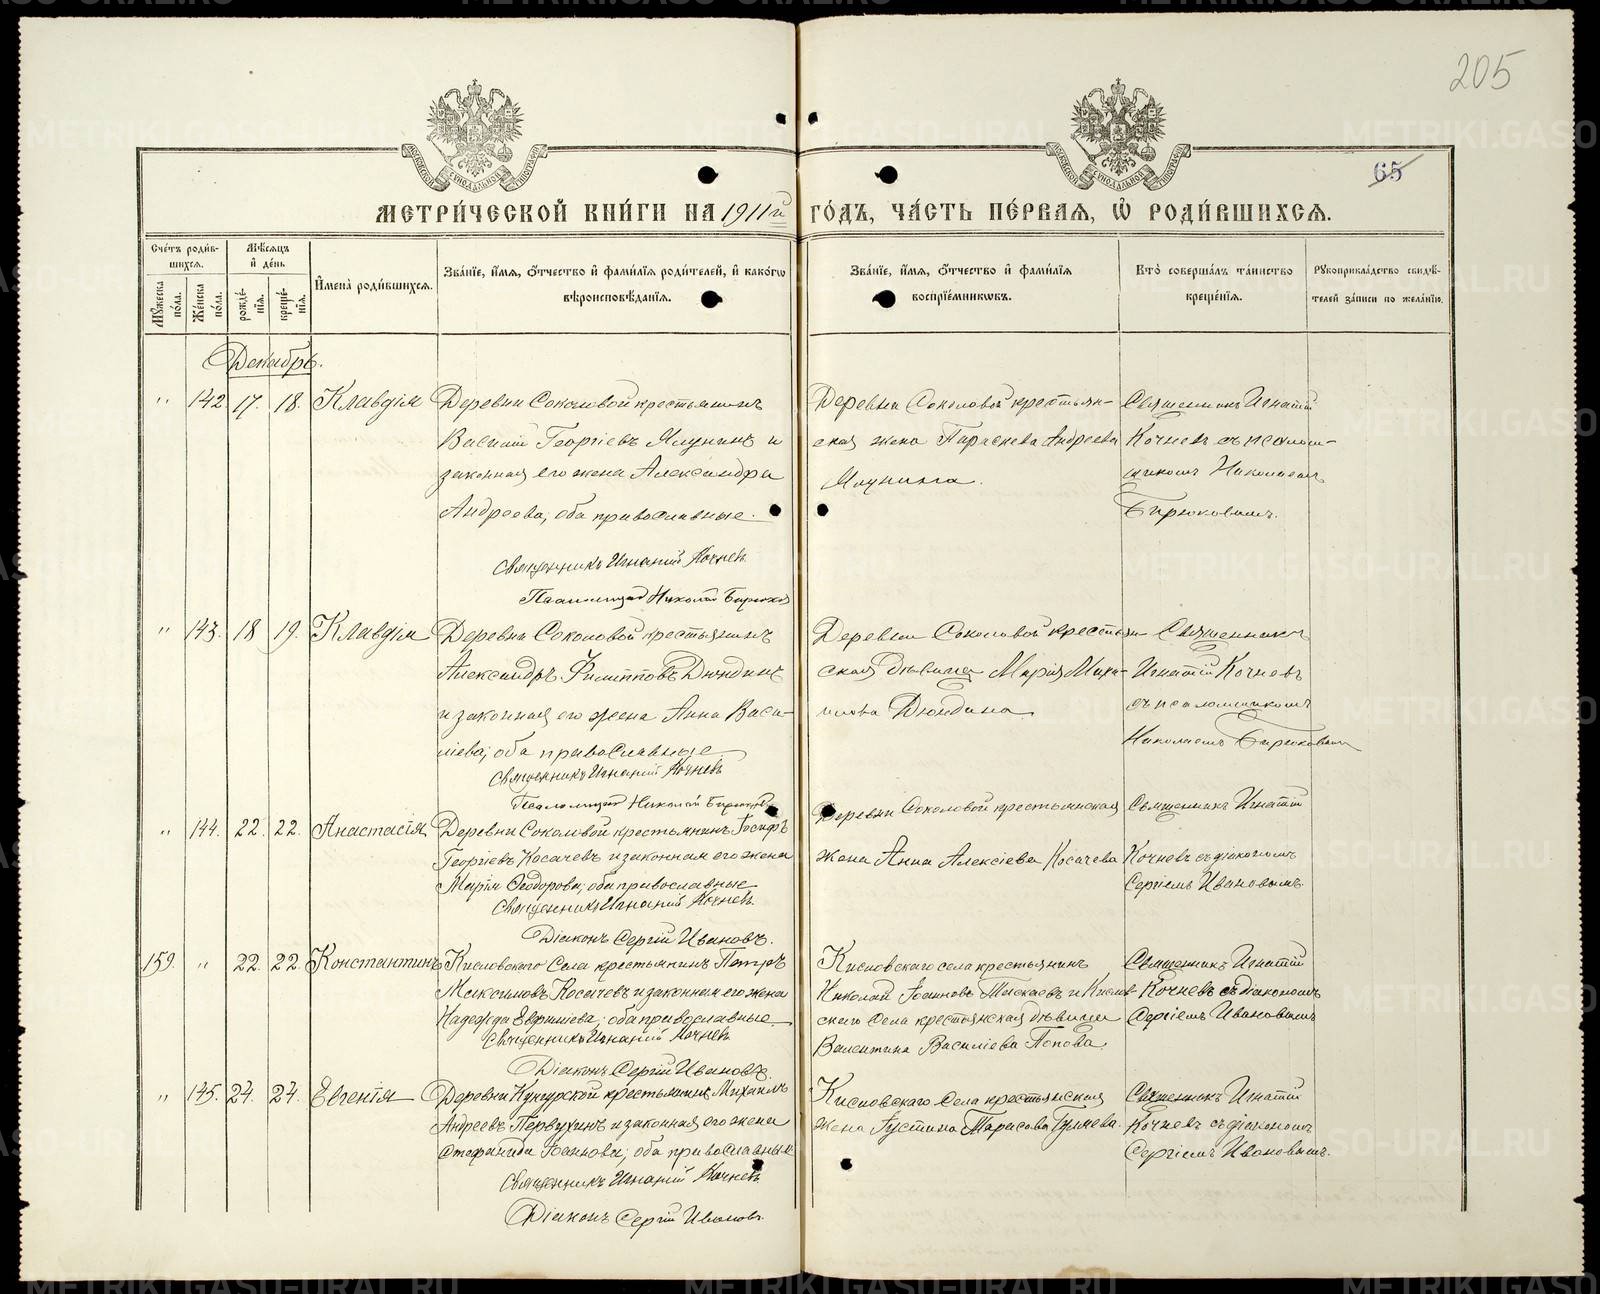 205
65
МОСКОВСКОЙ СѴНОДАЛЬНОЙ ТИПОГРАФІИ
МОСКОВСКОЙ СѴНОДАЛЬНОЙ ТИПОГРАФІИ
МЕТРИ́ЧЕСКОЙ КНИ́ГИ НА 1911й ГО́ДЪ, ЧА́СТЬ ПЕ́РВАЯ, Ѡ РОДИ́ВШИХСЯ.
Сче́тъ роди́в-
шихся.
Мꙋ́жеска по́ла.
Же́нска по́ла.
Мѣ́сяцъ
и҆ де́нь
рожде́-
нїя.
креще́-
нїя.
И҆мена̀ роди́вшихся.
Зва́нїе, и҆́мя, ѻ҆́тчество и҆ фами́лїя роди́телей, и҆ како́гѡ
вѣроисповѣ́данїя.
Зва́нїе, и҆́мя, ѻ҆́тчество и҆ фами́лїя
воспрїе́мникѡвъ.
Кто̀ соверша́лъ та́инство
креще́нїя.
Рꙋкоприкла́дство свидѣ́-
телей за́писи по жела́нїю.
Декабрь.
" 142. 17. 18. Клавдія
Деревни Соколовой крестьянинъ
Василій Георгіевъ Ялунинъ и
законная его жена Александра
Андреева, оба православные.
Священникъ Игнатій Кочневъ
Псаломщикъ Николай Бирюков
Деревни Соколовой крестьян-
ская жена Параскева Андреева
Ялунина.
Священникъ Игнатій
Кочневъ съ псалом-
щикомъ Николаемъ
Бирюковымъ.
" 143. 18 19. Клавдія
Деревни Соколовой крестьянинъ
Александръ Филипповъ Дюндинъ
и законная его жена Анна Васи-
ліева, оба православные
Священникъ Игнатій Кочневъ
Псаломщикъ Николай Бирюковъ
Деревни Соколовой крестьян-
ская дѣвица Марія Миха-
илова Дюндина
Священникъ
Игнатій Кочневъ
съ псаломщикомъ
Николаемъ Бирюковымъ
" 144. 22. 22. Анастасія
Деревни Соколовой крестьянинъ Іосифъ
Георгіевъ Косачевъ и законная его жена
Марія Ѳеодорова, оба православные
Священникъ Игнатій Кочневъ.
Діаконъ Сергій Ивановъ.
Деревни Соколовой крестьянская
жена Анна Алексіева Косачева
Священникъ Игнатій
Кочневъ съ діакономъ
Сергіемъ Ивановымъ.
159. " 22. 22. Константинъ
Кисловскаго Села крестьянинъ Петръ
Максимовъ Косачевъ и законная его жена
Надежда Евфиміева, оба православные
Священникъ Игнатій Кочневъ
Діаконъ Сергій Ивановъ.
Кисловскаго села крестьянинъ
Николай Іоанновъ Таскаевъ и Кислов-
скаго Села крестьянская дѣвица
Валентина Василіева Попова.
Священникъ Игнатій
Кочневъ съ діакономъ
Сергіемъ Ивановымъ
" 145. 24. 24. Евгенія
Деревни Кунгурской крестьянинъ Михаилъ
Андреевъ Первухинъ и законная его жена
Стефанида Іоаннова, оба православные
Священникъ Игнатій Кочневъ
Діаконъ Сергій Ивановъ.
Кисловскаго Села крестьянская
жена Іустина Тарасова Гуляева.
Священникъ Игнатій
Кочневъ съ діакономъ
Сергіемъ Ивановымъ.
METRIKI.GASO-URAL.RU